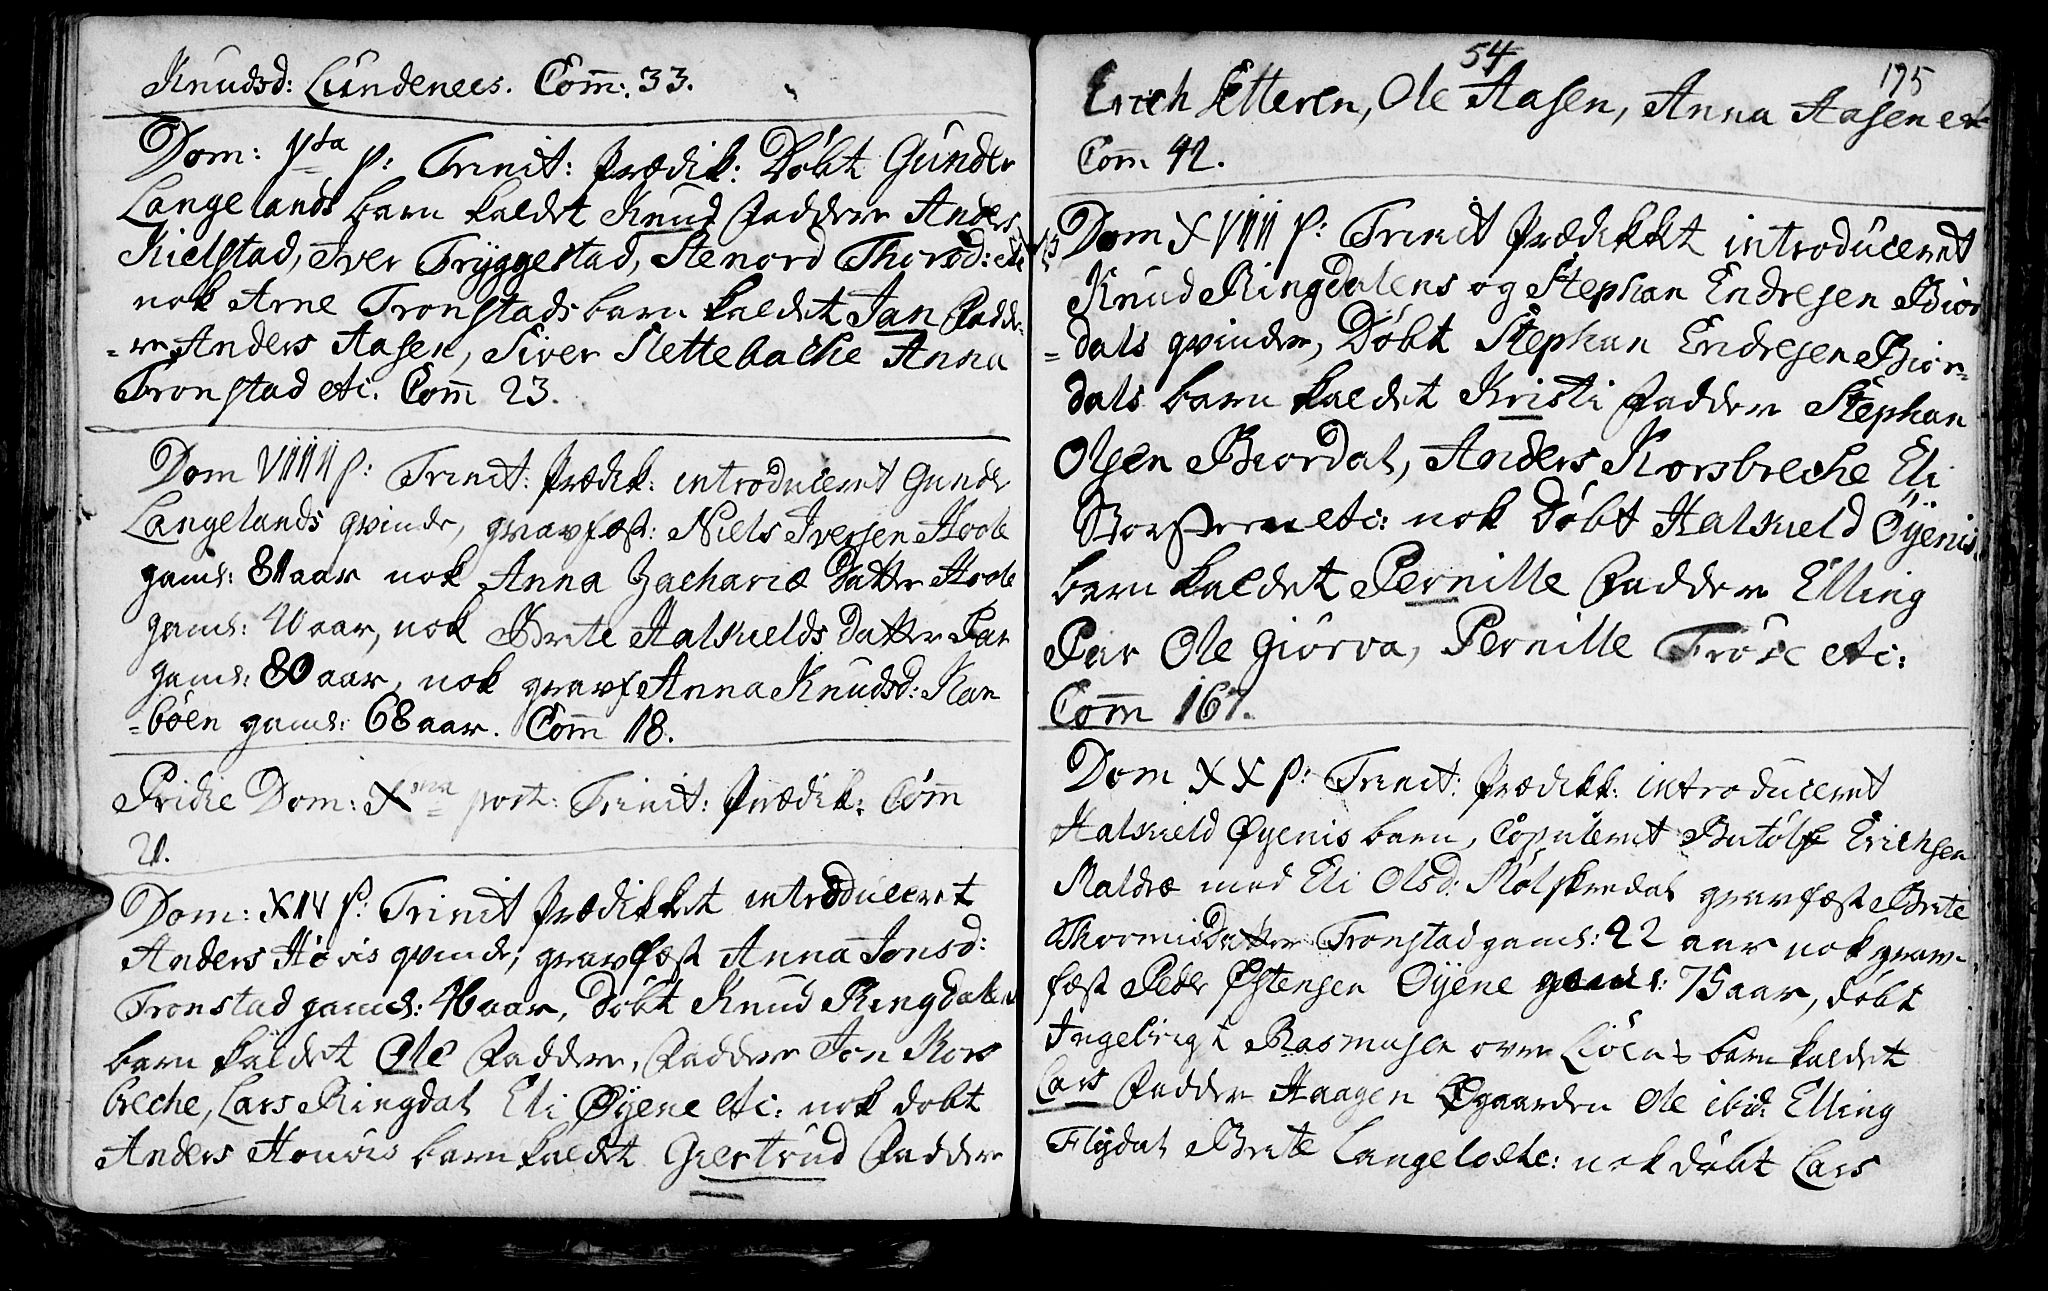 Knudsd: Lundenees. Com̄: 33.
Dom: V ta p: Trinit: Prædik: Døbt Gunder
Langelands barn kaldet Knud Faddere Anders
Kielstad, Iver Tryggestad, Stenord Thorsd: etc
nok Arne Tronstads barn kaldet Jan Fadde-
=re Anders Aasen, Siver Slettebache Anna
Tronstad etc. Com̄ 23.
Dom VIIII p: Trinit: Prædik: introduceret Gunder
Langelands qvinde, gravfæst: Niels Iversen Hoole
gaml: 81 aar nok Anna Zachariæ Datter Hoole
gaml: 40 aar, nok Brete Halsuelds Datter
gaml: 80 aar, nok gravf Anna Knudsd: Kan
=bøen gaml: 68 aar. Com̄ 18.
Pridie Dom: X ma post: Trinit: Prædik: Com̄
21.
Dom: XIV P: Trinit Prædikket introduceret
Anders Høvis qvinde, gravfæst Anna Jonsd:
Tronstad gaml: 46 aar, Døbt Knud Ringdalens
barn kaldet Ole Faddere, Faddere Jon Kors
breche, Lars Ringdal Eli Øyene etc: nok døbt
Anders Houvis barn kaldet Giertrud Faddere
54
175
Erich Sætteren, Ole Aasen, Anna Aasen etc
Com̄ 42.
Dom XVIIII p: Trinit Prædikket introduceret
Knud Ringdalens og Stephan Endresen Bior
=dals qvinder, Døbt Stephan Endresen Bior-
dals barn kaldet Kristi Faddere Stephan
Olsen Biordal, Anders Korsbreche Eli
etc: nok Døbt Halsueld Øyenis
barn kaldet Pernille Faddere Elling
Ole Giørva, Pernille etc:
Com̄ 167.
Dom XX p: Trinit: Prædikk: introduceret
Halsueld Øyenis barn, Copuleret Butolf Erichsen
med Eli Olsd: Molskredal gravfæst Brete
Datter Tronstad gaml: 22 aar nok grav-
fæst Peder Østensen Øyene gaml: 75 aar, døbt
Ingebrigt Rasmusen barn kaldet
Lars Faddere Haagen Øgaarden Ole ibid: Elling
Flydal Brete etc: nok døbt Lars